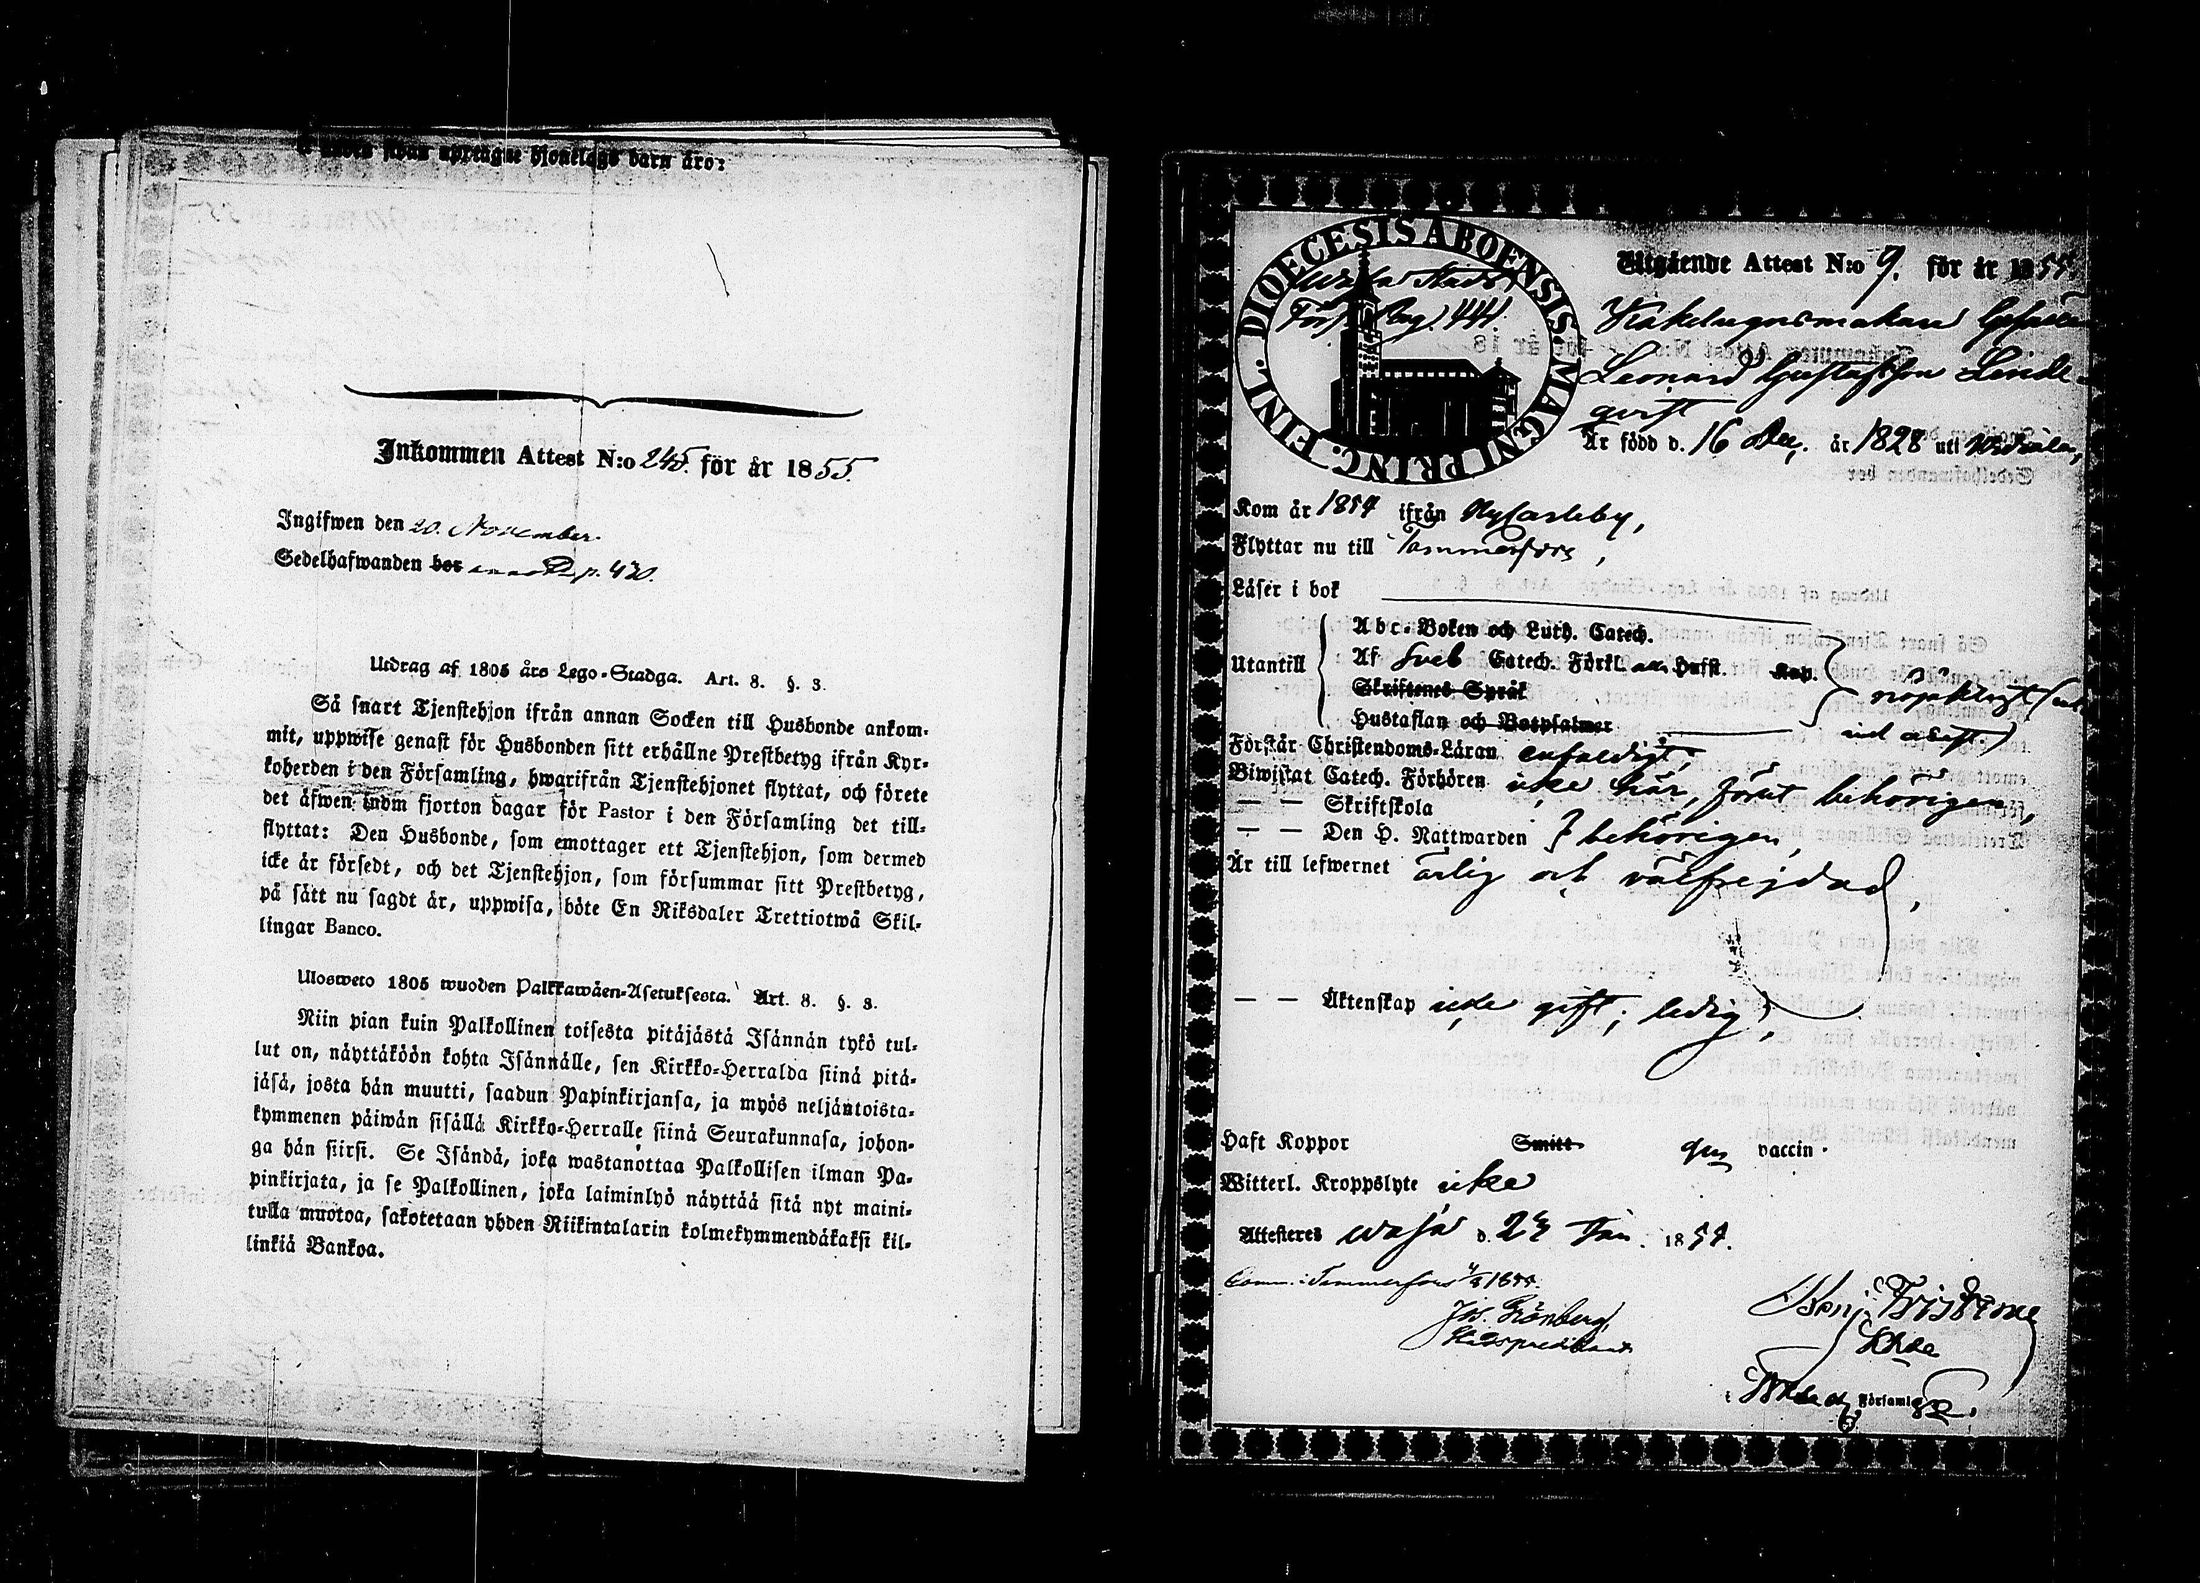 ofwan uptagne hjonelags barn äro:
Inkommen Attest N:o 245. för år 1855.
Ingifwen den 20. November.
Sedelhafwanden bor p. 420.
Utdrag af 1805 års Lego-Stadga. Art. 8. §. 3.
Så snart Tjenstehjon ifrån annan Socken till Husbonde ankom-
mit, uppwise genast för Husbonden sitt erhållne Prestbetyg ifrån Kyr-
koherden i den Församling, hwarifrån Tjenstehjonet flyttat, och förete
det äfwen inom fjorton dagar för Pastor i den Församling det till-
flyttat: Den Husbonde, som emottager ett Tjenstehjon, som dermed
icke är försedt, och det Tjenstehjon, som försummar sitt Prestbetyg,
på sätt nu sagdt är, uppwisa, böte En Riksdaler Trettiotwå Skil-
lingar Banco.
Ulosweto 1805 wuoden Palkkawäen-Asetuksesta. Art. 8. §. 3.
Niin pian kuin Palkollinen toisesta pitäjästä Isännän tykö tul-
lut on, näyttäköön kohta Isännälle, sen Kirkko-Herralda siinä pitä-
jäsä, josta hän muutti, saadun Papinkirjansa, ja myös neljäntoista-
kymmenen päiwän sisällä Kirkko-Herralle siinä Seurakunnasa, johon-
ga hän siirsi. Se Isändä, joka wastanottaa Palkollisen ilman Pa-
pinkirjata, ja se Palkollinen, joka laiminlyö näyttää sitä nyt maini-
tulla muotoa, sakotetaan yhden Riikintalarin kolmekymmendäkaksi kil-
linkiä Bankoa.
DIOECESIS ABOENSIS MAGNI PRINC. FINL.
Wasa Stads
Förs. Pag. 444.
Utgående Attest N:o 9. för år 1855.
Kakelugnsmakare Gesällen
Leonard Gustafsson Linde-
qvist
Är född d. 16 Dec. år 1828 uti
Kom år 1854 ifrån Nycarleby,
Flyttar nu till Tammerfors,
Läser i bok
Utantill
Abc-Boken och Luth. Catech.
Af Sveb Catech. Förkl. Hufst. Kap.
Skriftenes Språk
Hustaflan och Botpsalmer
nöjaktigt
Förstår Christendoms-Läran enfaldigt,
Biwistat Catech. Förhören icke här, förut behörigen,
— — Skriftskola
— — Den H. Nattwarden } behörigen,
Är till lefwernet ärlig och välfrejdad,
— — Äktenskap icke gift; ledig,
Haft Koppor Smitt gm vaccin.
Witterl. Kroppslyte icke
Attesteres Wasa d. Jan. 1854.
Comm. i Tammerfors
Jos. Grönberg,
Stadspredikant
Församl